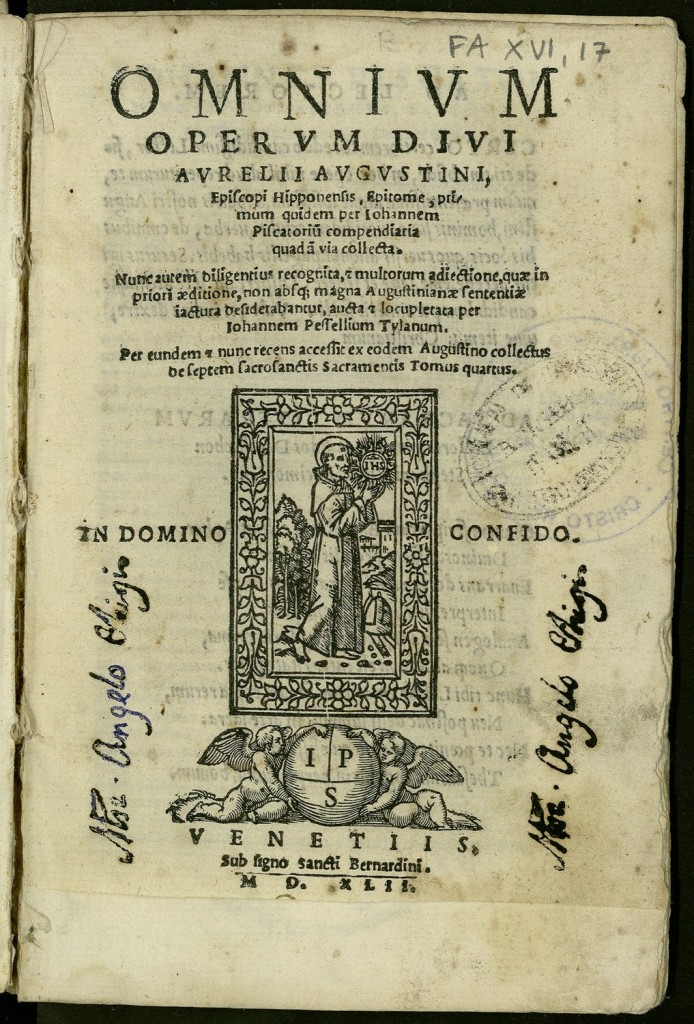 FA XVI, 17
OMNIVM
OPERVM DIVI
AVRELII AVGVSTINI,
Episcopi Hipponensis, Epitome, pri/
mum quidem per Iohannem
Piscatoriū compendiaria
quadā via collecta.
Nunc autem diligentius recognita, ⁊ multorum adiectione, quæ in
priori æditione, non absq; magna Augustinianæ sententiæ
iactura desiderabantur, aucta ⁊ locupletata per
Iohannem Pessellium Tylanum.
Per eundem ⁊ nunc recens accessit ex eodem Augustino collectus
de septem sacrosanctis Sacramentis Tomus quartus.
IHS
IN DOMINO CONFIDO.
Angelo Chigi
Angelo Chigi
I P
S
VENETIIS,
Sub signo Sancti Bernardini.
M D. XLII.
CRISTO